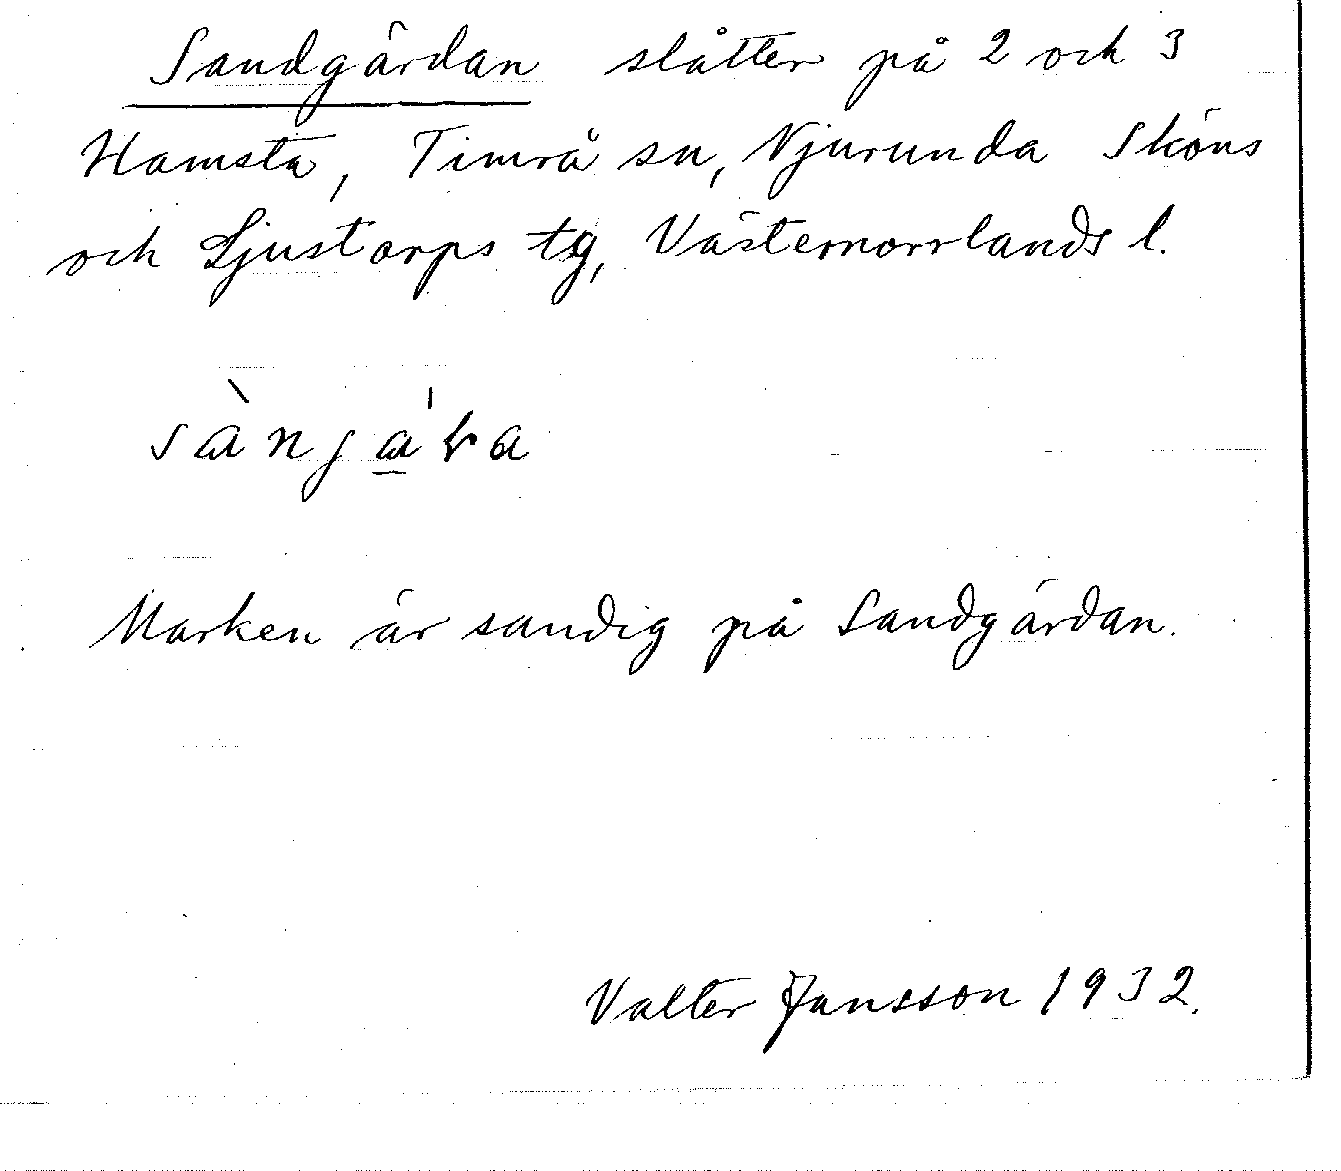 Sandgärdan slåtter på 2 och 3
Hamsta, Timrå sn, Njurunda Sköns
och Ljustorps tg, Västernorrlands l.
Marken är sandig på Sandgärdan.
Valter Jansson 1932.